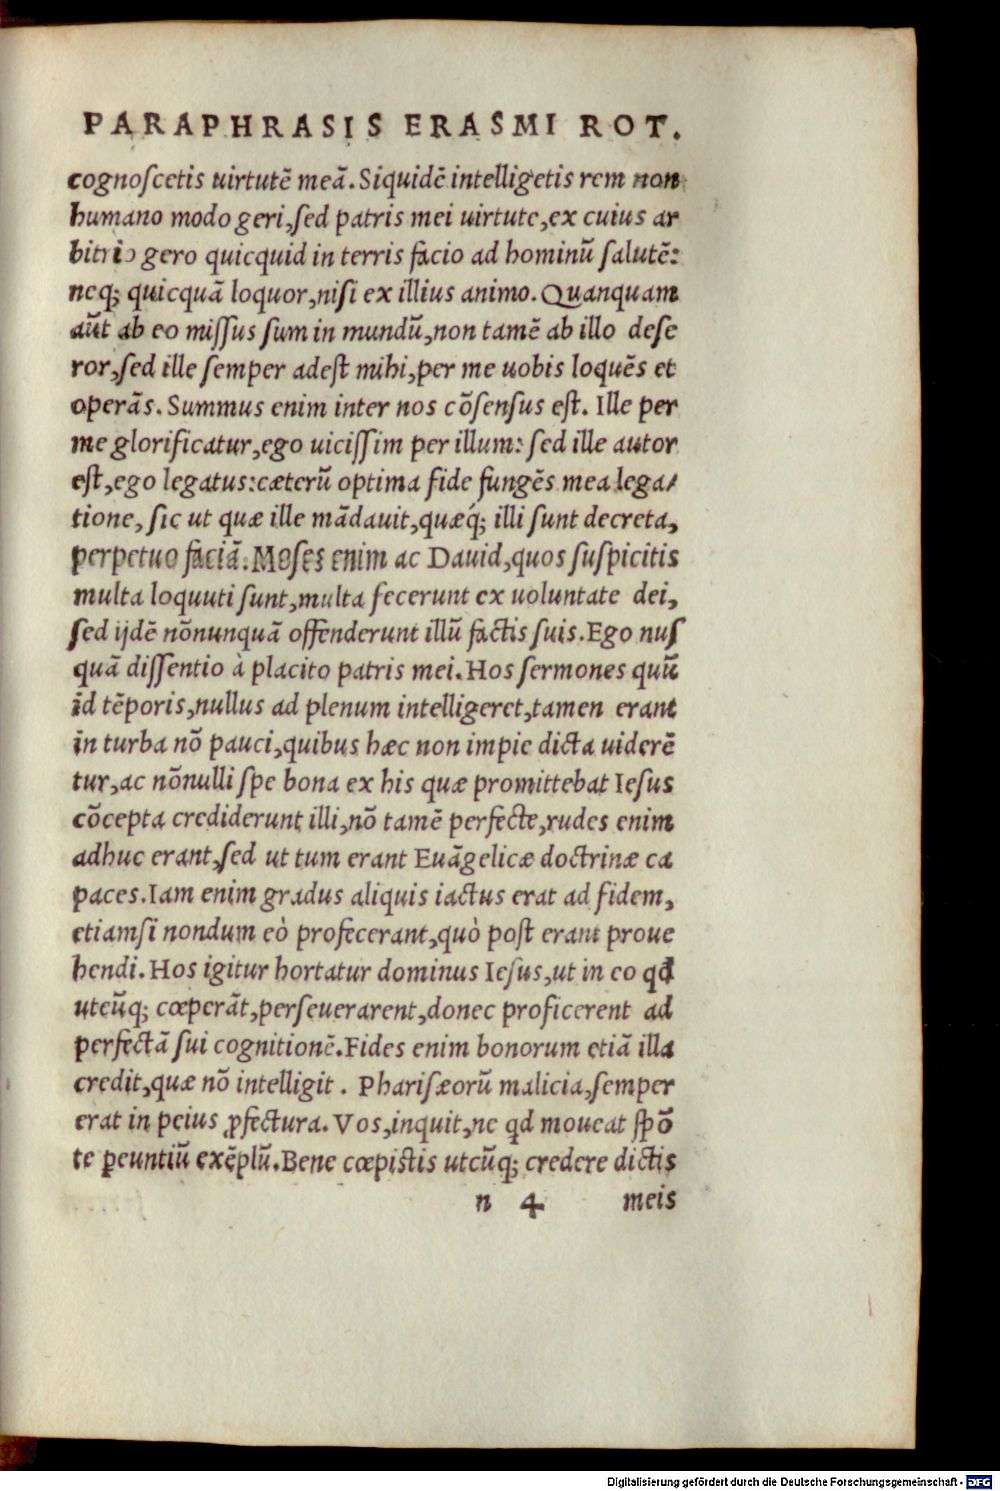 PARAPHRASIS ERASMI ROT.
cognoſcetis uirtutē meā. Siquidē intelligetis rem non
humano modo geri, ſed patris mei uirtute, ex cuius ar
bitrio gero quicquid in terris facio ad hominū ſalutē:
neq; quicquā loquor, niſi ex illius animo. Quanquam
aūt ab eo miſſus ſum in mundū, non tamē ab illo deſe
ror, ſed ille ſemper adeſt mihi, per me uobis loquēs et
operās. Summus enim inter nos cōſenſus eſt. Ille per
me glorificatur, ego uiciſſim per illum: ſed ille autor
eſt, ego legatus: cæterū optima fide fungēs mea lega/
tione, ſic ut quæ ille mādauit, quæq́; illi ſunt decreta,
perpetuo faciā. Moſes enim ac Dauid, quos ſuſpicitis
multa loquuti ſunt, multa fecerunt ex uoluntate dei,
ſed ijdē nōnunquā offenderunt illū factis ſuis. Ego nuſ
quā diſſentio à placito patris mei. Hos ſermones quū
id tēporis, nullus ad plenum intelligeret, tamen erant
in turba nō pauci, quibus hæc non impie dicta uiderē
tur, ac nōnulli ſpe bona ex his quæ promittebat Ieſus
cōcepta crediderunt illi, nō tamē perfecte, rudes enim
adhuc erant, ſed ut tum erant Euāgelicæ doctrinæ ca
paces. Iam enim gradus aliquis iactus erat ad fidem,
etiamſi nondum eò profecerant, quò poſt erant proue
hendi. Hos igitur hortatur dominus Ieſus, ut in eo qd
utcūq; cœperāt, perſeuerarent, donec proficerent ad
perfectā ſui cognitionē. Fides enim bonorum etiā illa
credit, quæ nō intelligit. Phariſæorū malicia, ſemper
erat in peius ꝓfectura. Vos, inquit, ne qd moueat ſpō
te ꝑeuntiū exēplū. Bene cœpiſtis utcūq; credere dictis
n 4 meis
Digitalisierung gefördert durch die Deutsche Forschungsgemeinschaft - DFG